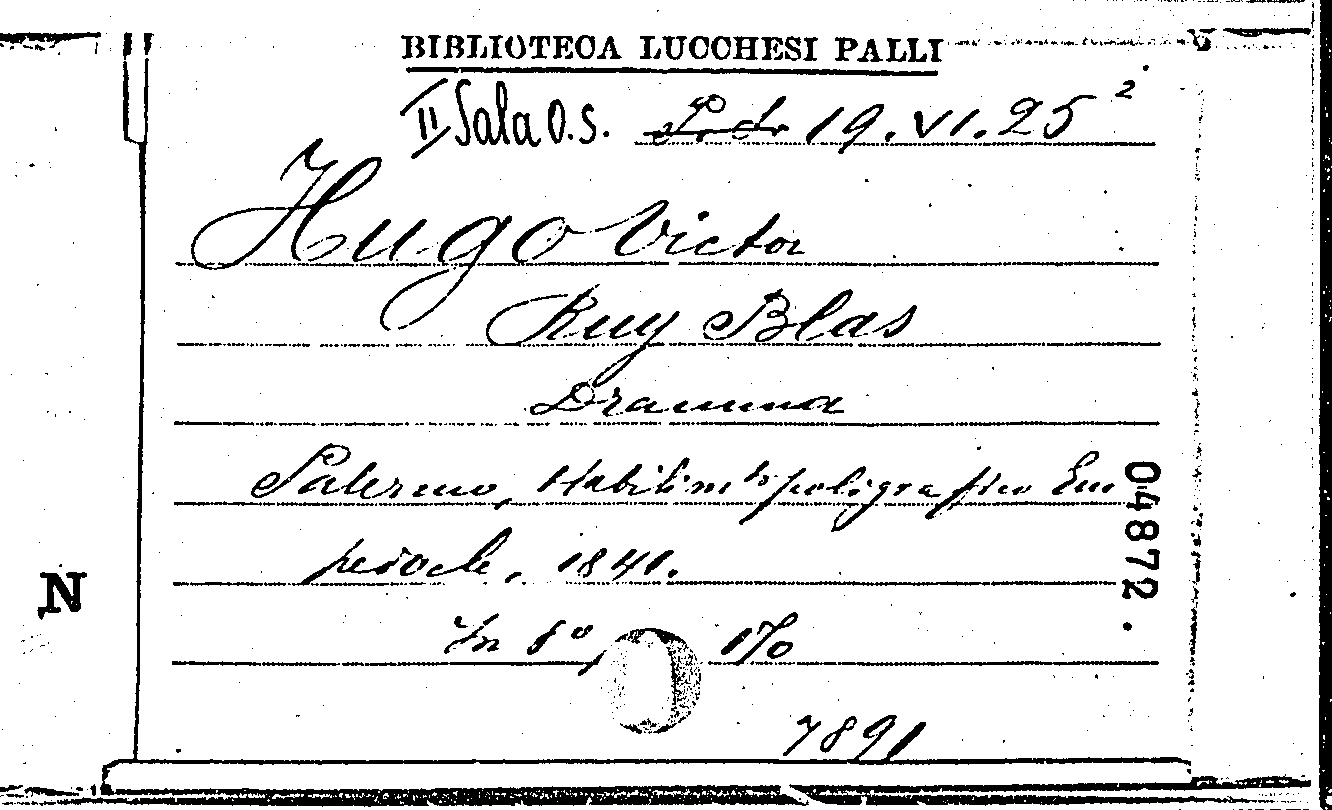 BIBLIOTECA LUCCHESI PALLI
II Sala O.S. 19.VI.25²
Hugo Victor
Ruy Blas
Dramma
Palermo, Stabilimto poligrafico Em
pedocle, 1841.
In 8°,
7891
04872.
N